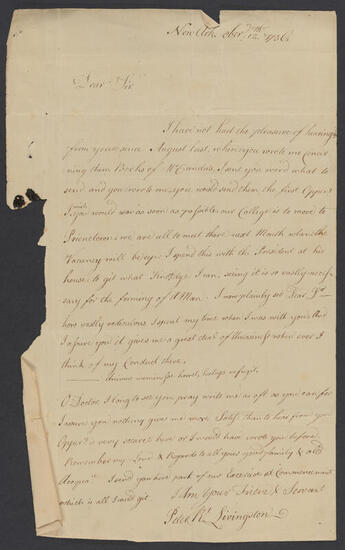 New Ark 8ber 12th 1756
Dear Sir
I have not had the pleasure of hearing
from you since August last, when you wrote me concer
ning them Books of Mr I sent you word what to
send and you wrote me you would send them the first Oppert
I wish you would war as soon as possible our College is to move to
Princeton we are all to meet there next Month when the
Vacancy will be up. I spend this with the President at his
house to git what Knoledge I can, seing it is so vastly neces
sary for the forming of a Man. I now plainly see Dear Sr
how vastly rediculous I spent my time when I was with you, this
I assure you it gives me a great deal of Uneasiness when ever I
think of my Conduct there.
animus meminisse horret, luctuque refugit.
O Doctor I long to see you pray write me as oft as you can for
I assure you nothing gives me more Satisf than to hear from you
Oppert is very scarce here or I would have wrote you before
Remember my Love & Regards to all your good family &
I send you here part of our Exercise at Commencement
which is all I could git
I Am Your Friend & Servant
Peter R. Livingston